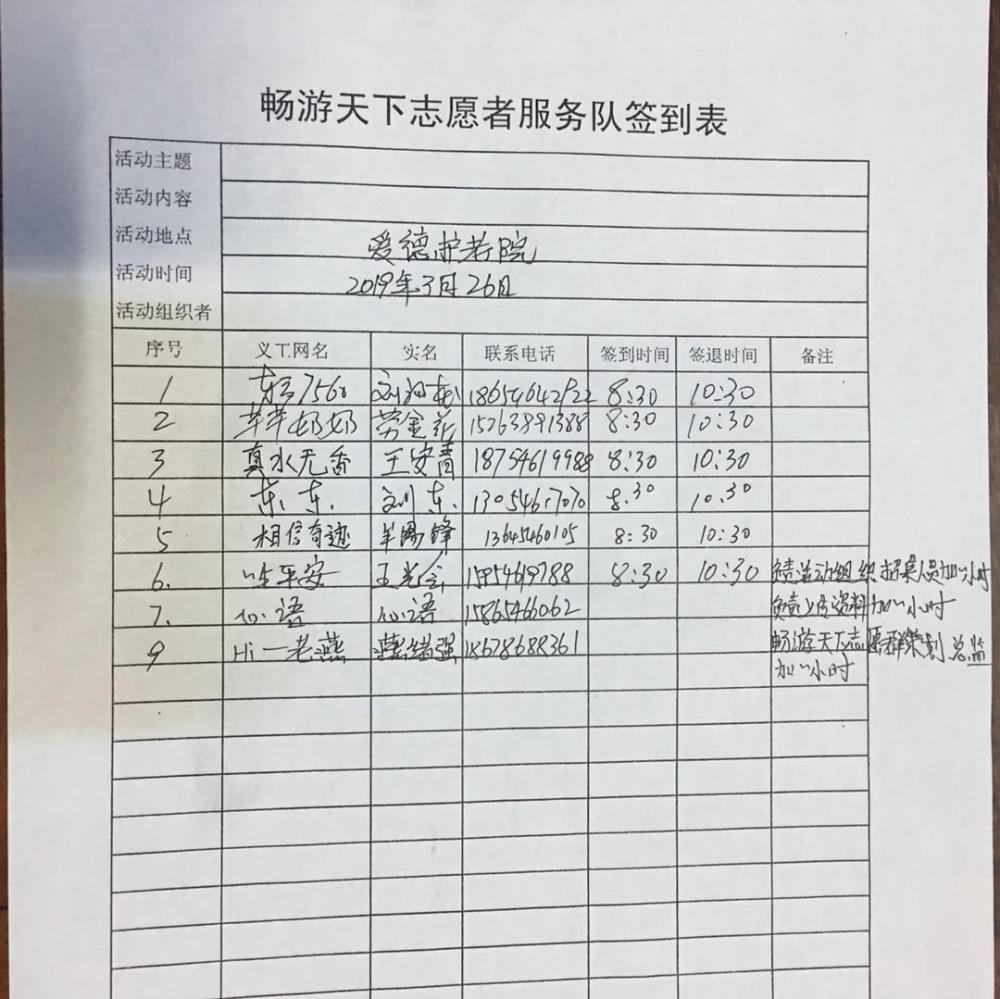 畅游天下志愿者服务队签到表
活动主题
活动内容
活动地点 爱德护老院
活动时间 2019年3月26日
活动组织者
序号 义工网名 实名 联系电话 签到时间 签退时间 备注
1 8:30 10:30
2 芊芊奶奶 劳金花 15263891388 8:30 10:30
3 真水无香 王安青 18754619988 8:30 10:30
4 东东. 刘东. 8.30 10.30
5 相信奇迹 13645460105 8:30 10:30
6. 一生平安 8:30 10:30 负责活动组织招集人员加一小时
7. 心语 心语 15865466062 负责上传资料加一小时
9 Hi一老燕 18678688361 畅游天下志愿群策划总监
加一小时